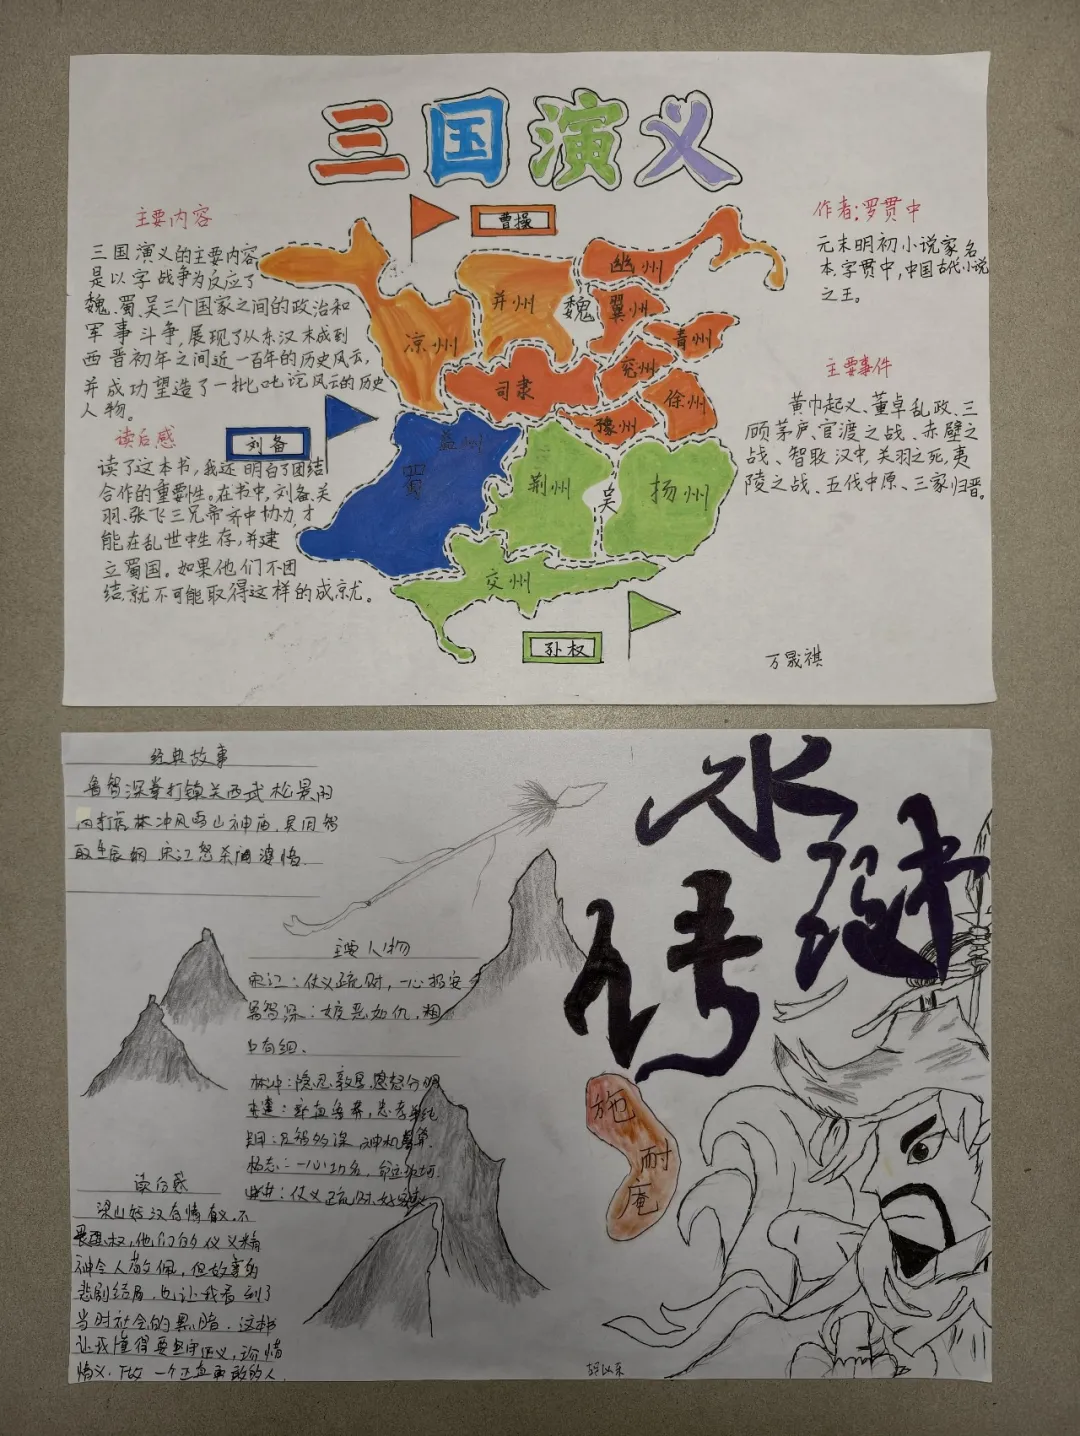 三国演义
主要内容
三国演义的主要内容
是以字战争为反应了
魏、蜀、吴三个国家之间的政治和
军事斗争,展现了从东汉末成到
西晋初年之间近一百年的历史风云,
并成功塑造了一批叱咤风云的历史
人物。
读后感
读了这本书,我还明白了团结
合作的重要性。在书中,刘备、关
羽、张飞三兄弟齐中协力,才
能在乱世中生存,并建
立蜀国。如果他们不团
结,就不可能取得这样的成就。
曹操
刘备
孙权
幽州
并州
魏
翼州
凉州
青州
兖州
司隶
徐州
豫州
益州
蜀
荆州
吴
扬州
交州
作者:罗贯中
元末明初小说家,名
本,字贯中,中国古代小说
之王。
主要事件
黄巾起义、董卓乱政、三
顾茅庐、官渡之战、赤壁之
战、智取汉中,关羽之死,夷
陵之战、五伐中原、三家归晋。
万晟祺
水浒
传
施
耐
庵
经典故事
鲁智深拳打镇关西武松景阳
打虎林冲风雪山神庙,吴用智
取生辰纲 宋江怒杀阎婆惜
主要人物
宋江:仗义疏财,一心招安
鲁智深:嫉恶如仇,粗
中有细.
林冲:隐忍 恩怒分明
足智多谋 神机
杨志:一心功名,
仗义疏财,好
读后感
梁山好汉有情有义,不
畏 权,他们的仗义精
神令人敬佩,但故事的
悲剧结局,也让我看到了
当时社会的黑暗.这本书
让我懂得要坚守正义,珍惜
情义,做一个正直勇敢的人.